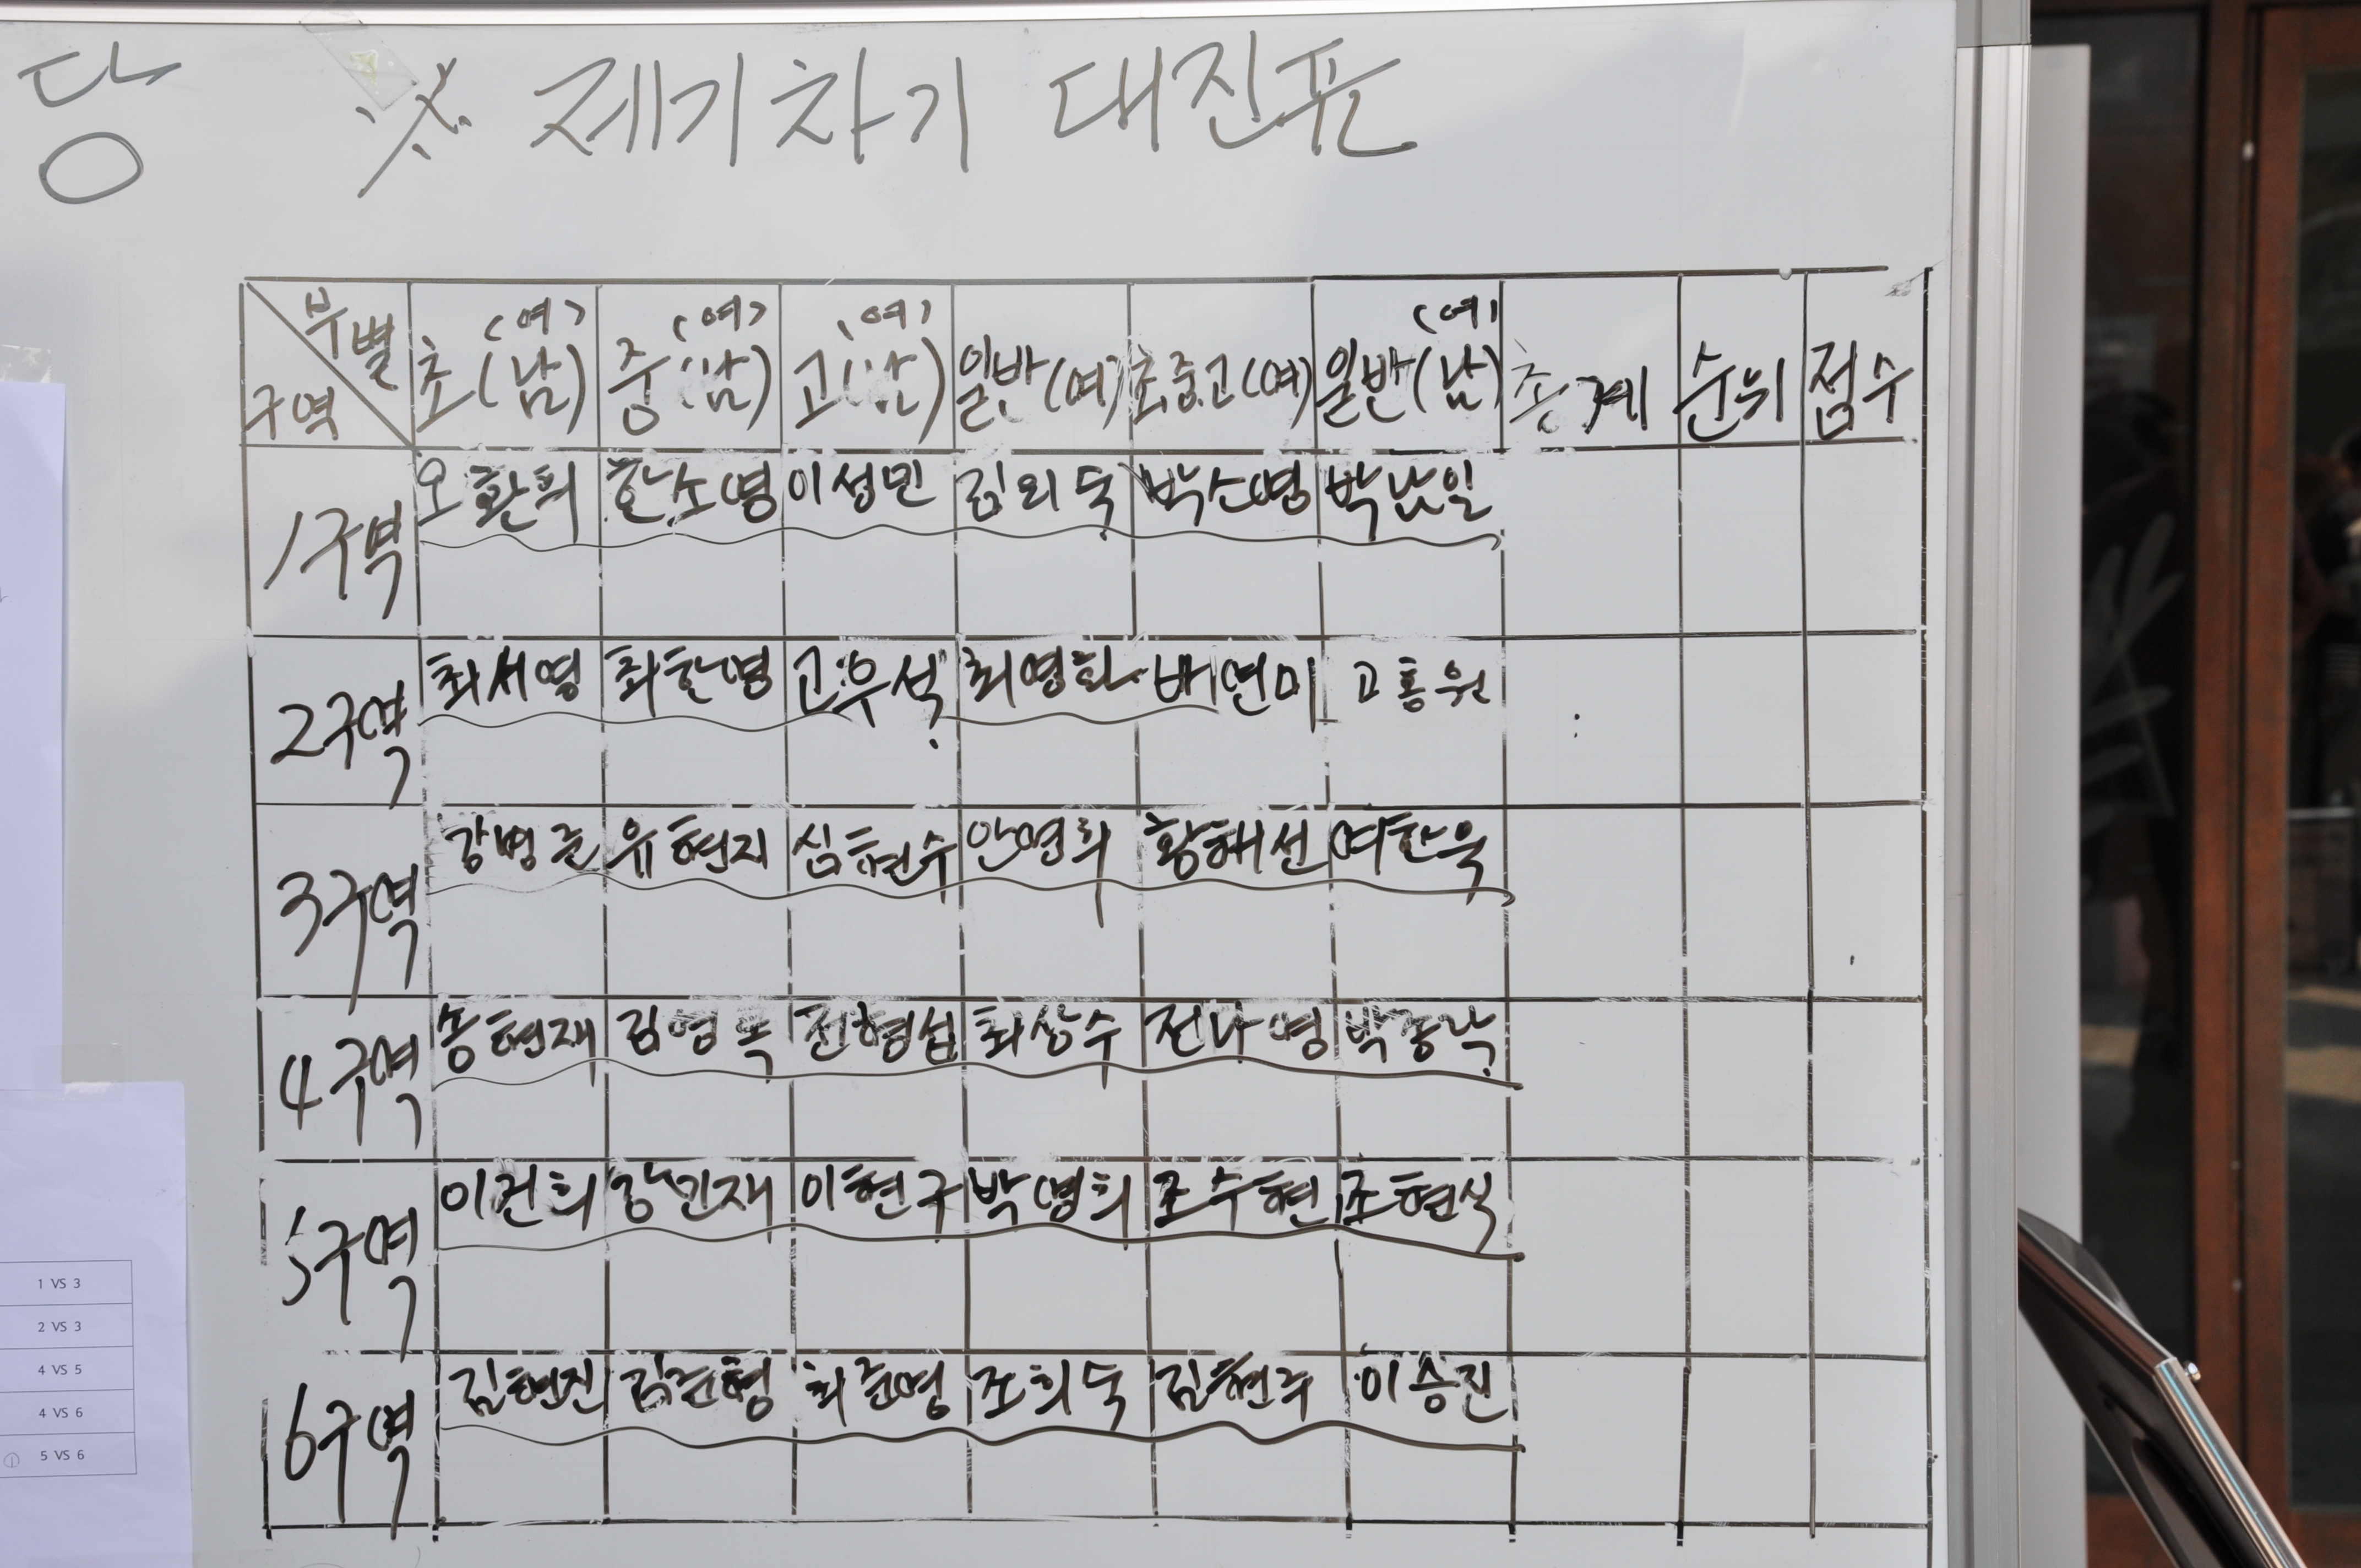 당
※ 제기차기 대진표
부별 (여) (여) (여) (여)
구역 초(남) 중(남) 고(남) 일반(여) 초중고(여) 일반(남) 총계 순위 점수
1구역 오환희 한소영 이성민 김외숙 박소영 박남일
2구역 최서영 최한명 고우석 최영화 배연미 고흥원
3구역 강병준 유현지 심현수 안영희 황해선 여한욱
4구역 송현재 김영록 전형섭 최상수 전나영 박종낙
5구역 이건희 강민재 이현구 박명희 조수현 조현식
6구역 김현진 김준형 최준영 조희숙 김현주 이승진
1 VS 3
2 VS 3
4 VS 5
4 VS 6
5 VS 6